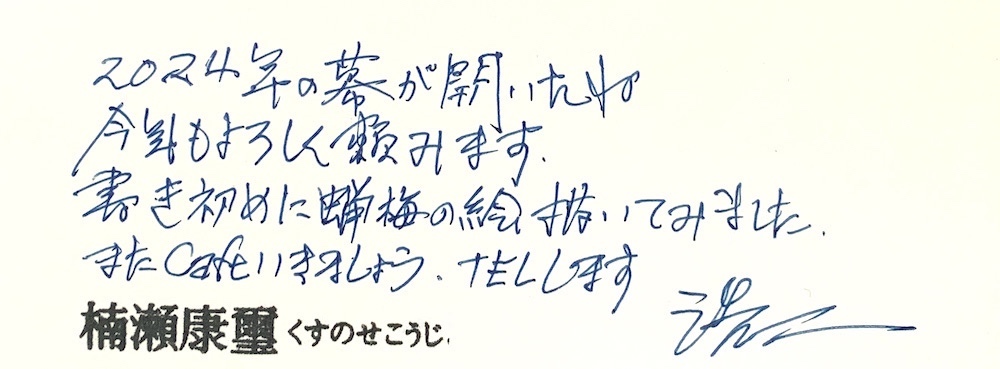 2024年の幕が開いたね
今年もよろしく頼みます.
書き初めに蝋梅の絵描いてみました.
またCafeいきましょう.TELします
楠瀬康璽 くすのせこうじ.